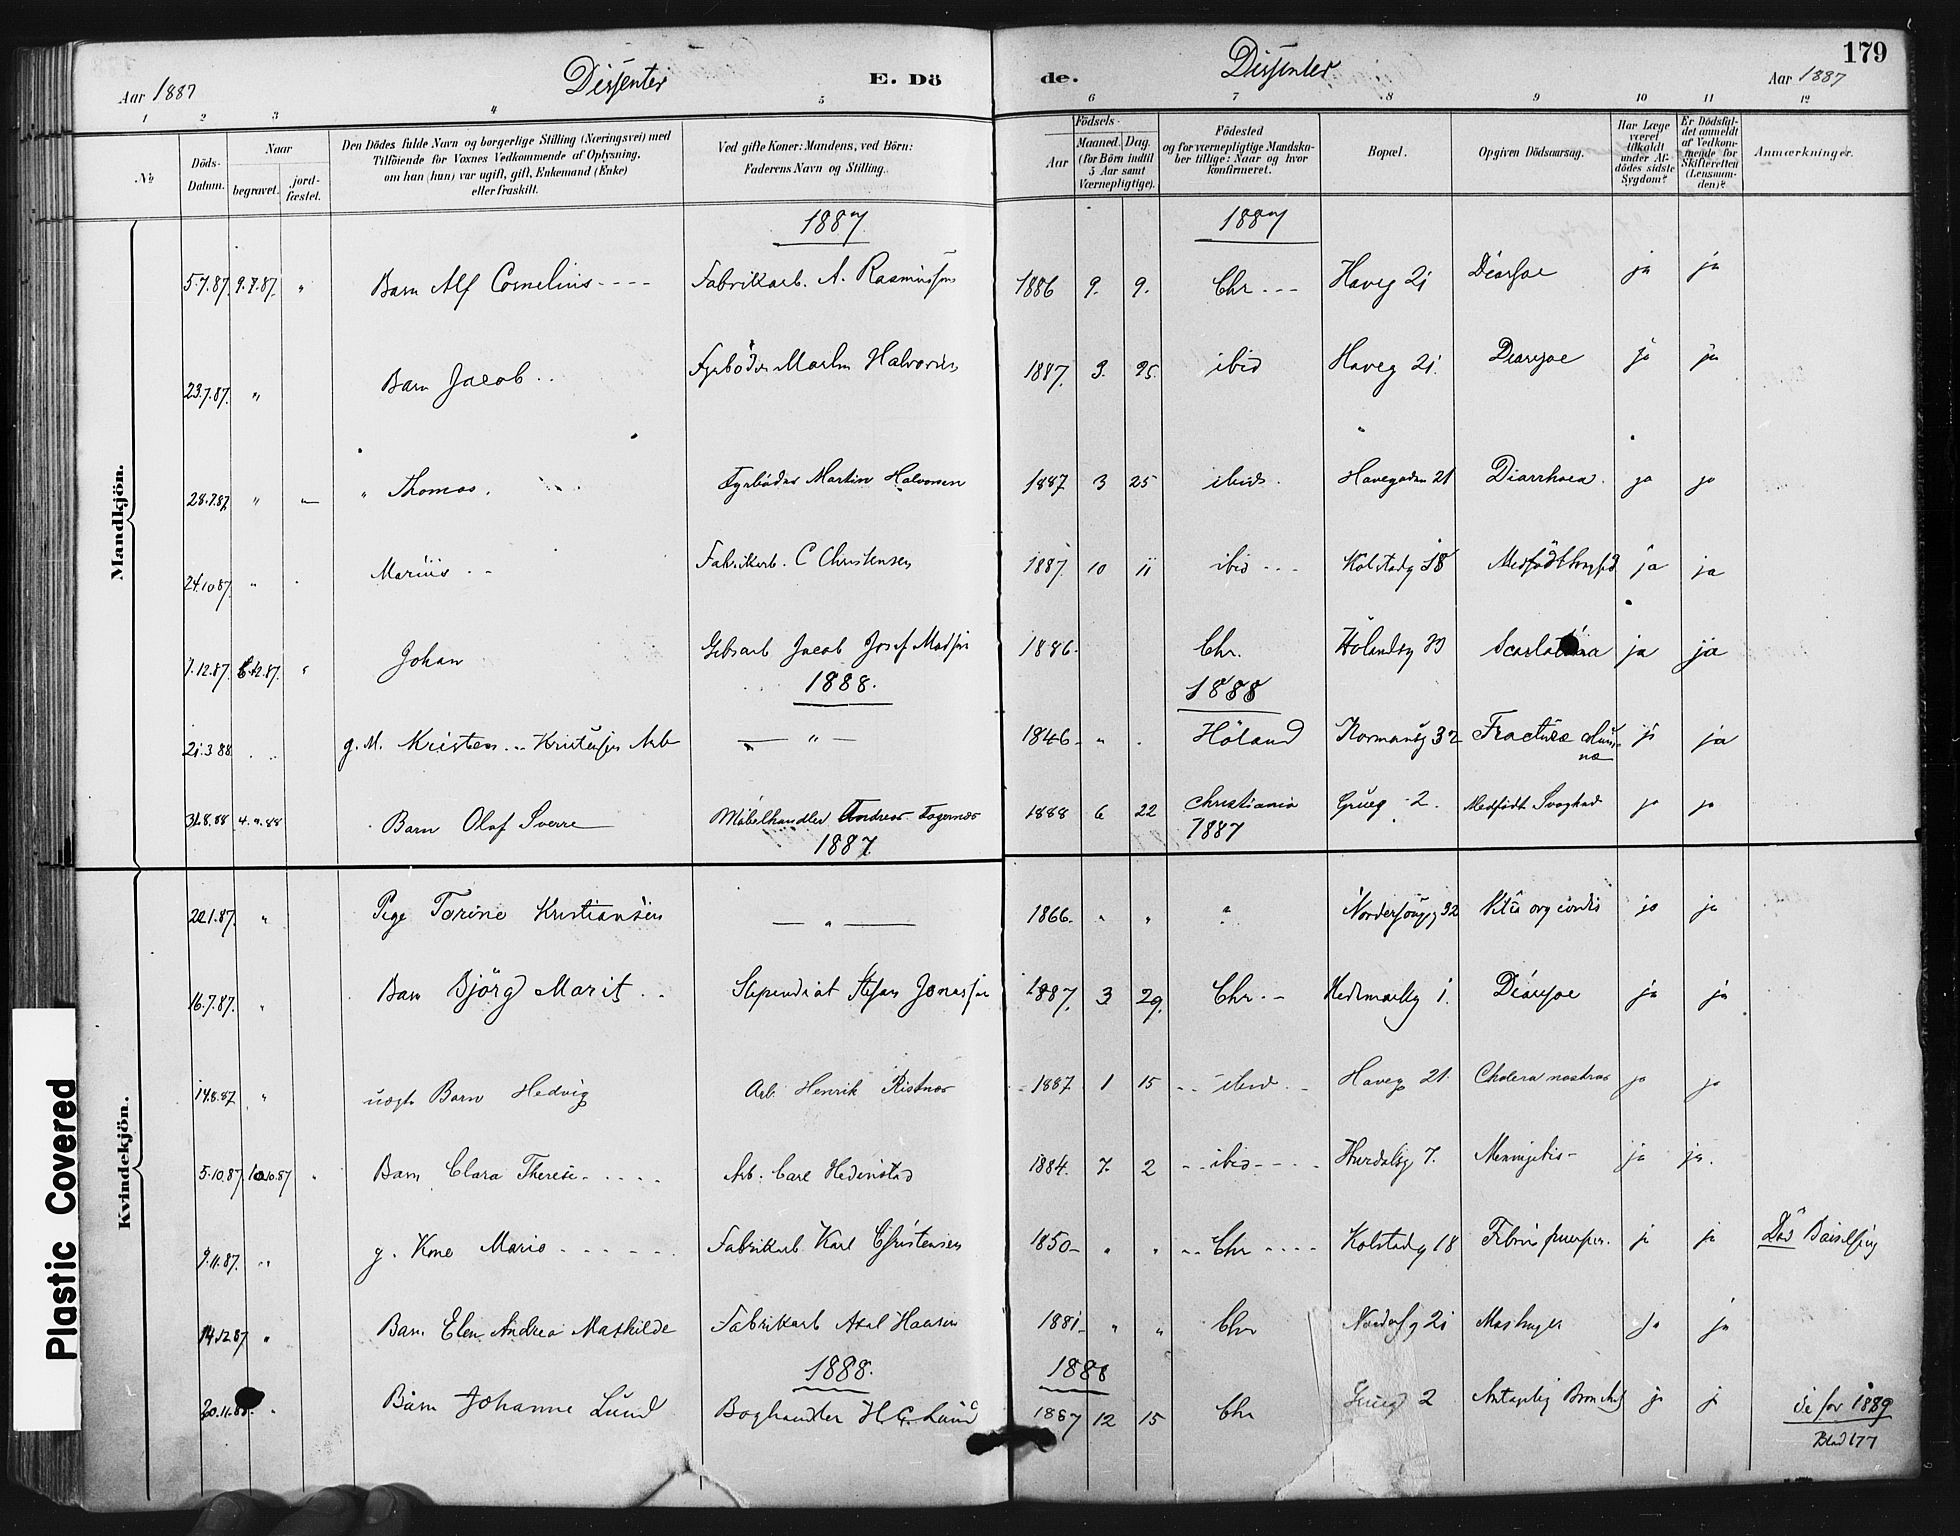 179
Aar 1887 Dissenter E. Dö de. Dissenter Aar 1887
1 2 3 4 5 6 7 8 9 10 11 12
No Döds-Datum. Naar begravet. jord-fæstet. Den Dödes fulde Navn og borgerlige Stilling (Næringsvei) med Tilföiende for Voxnes Vedkommende af Oplysning, om han (hun) var ugift, gift, Enkemand (Enke) eller fraskilt. Ved gifte Koner: Mandens, ved Börn: Faderens Navn og Stilling. Födsels- Aar Maaned. Dag. (for Börn indtil 5 Aar samt Værnepligtige). Födested og for værnepligtige Mandskaber tillige: Naar og hvor konfirmeret. Bopæl. Opgiven Dödsaarsag. Har Læge været tilkaldt under Afdödes sidste Sygdom? Er Dödsfaldet anmeldt af Vedkommende for Skifteretten (Lensmanden)? Anmærkninger.
Mandkjön.
1887. 1887
5.7.87. 9.7.87. " Barn Alf Cornelius Fabrikarb. A. Rasmussen 1886 9. 9. Chr Haveg 21 Diarhoe ja ja
23.7.87. " Barn Jacob Fyrböder Martin Halvorsen 1887. 3. 25. ibid Haveg 21. Diarhoe ja ja
28.7.87 " " Thomas. Fyrböder Martin Halvorsen 1887 3 25 ibid. Havegaden 21 Diarrhoea. ja ja
24.10.87. " Marius Fabrikarb. C Christensen 1887. 10 11 ibid Kolstadg 18 ja ja
7.12.87. 12.87. " Johan Jacob Josef Madsen 1886. Chr. Hölandsg Scarlatina ja ja
1888. 1888
21.3.88 g. M. Kristen Arb — " — 1846 " Höland Normansg 32 Fractura ja ja
31.8.88 4.9.88 Barn Olaf Sverre Möbelhandler Andreas Fagernæs 1888 6 22 Christiania Grüneg 2. Medfödt Svaghed ja ja
Kvindekjön.
1887. 1887
22.1.87. " Pige Torine Kristiansen — " — 1866. " " " 32 Vitium org cordis ja ja
16.7.87. " Barn Björg Marit Stipendiat Stefan 1887. 3 29. Chr. Hedemarksg 1. Diarhoe ja ja
14.8.87 " uægte Barn Hedvig Arb. Henrik Ristnæs 1887. 1 15 ibid Haveg 21. Cholera nostras ja ja
5.10.87 10.10.87 " Barn Clara Therese Arb. Carl Hedenstad 1884. 7. 2 ibid Hurdalsg 7. Meningitis ja ja.
9.11.87. " g. Kone Marie Fabrikarb Karl Christensen 1850 " " Chr Kolstadg 18 Febris puerper. ja ja Död Barselseng
14.12.87 " Barn Elen Andrea Mathilde Fabrikarb Axel Hansen 1881 " " Chr 21 Mæslinger ja ja
1888. 1888
20.11.88. " Barn Johanne Lund Boghandler H. C. Lund 1887 12 15 Chr Grüneg 2 ja ja se for 1889
Blad 177
Plastic Covered